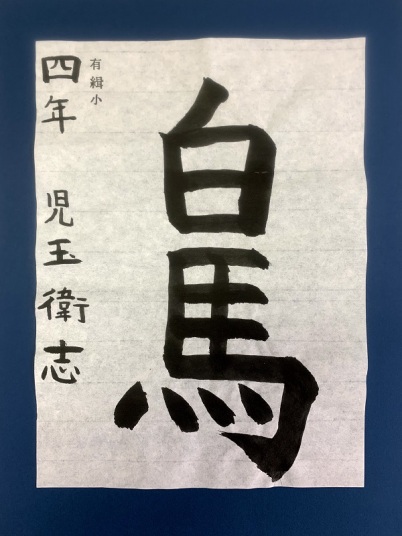 白馬
有緝小
四年 児玉衛志